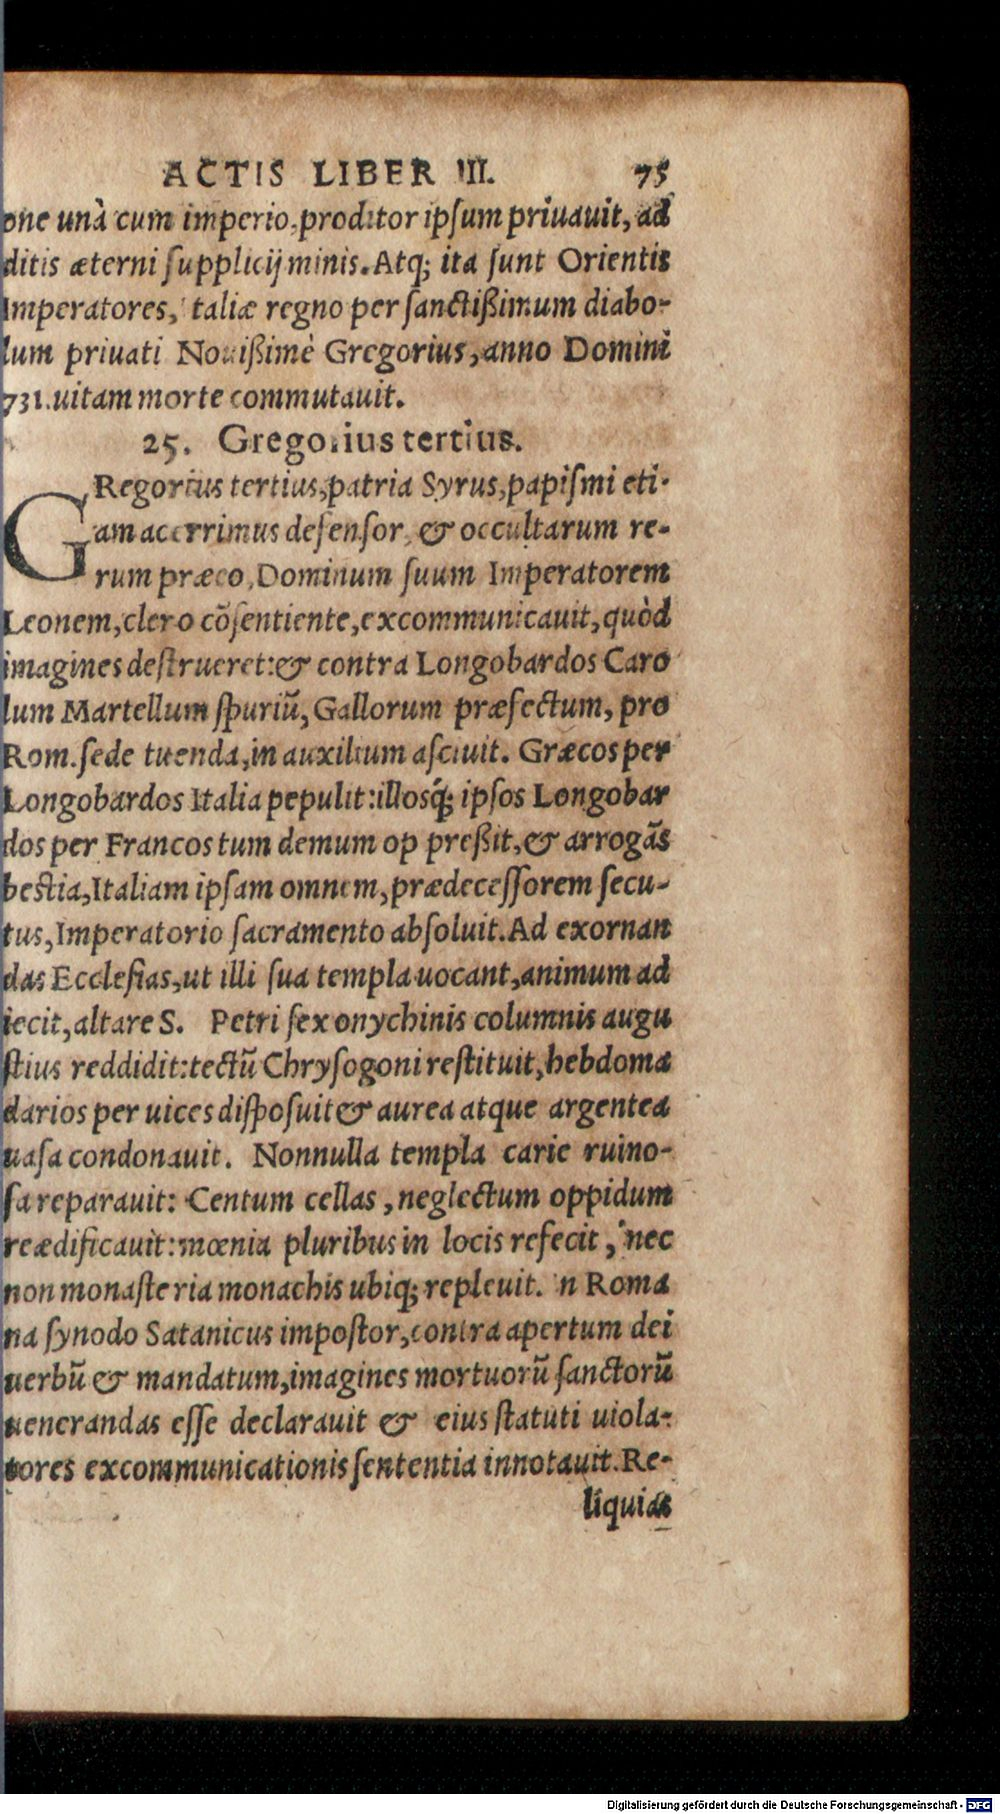 ACTIS LIBER III. 75
one unà cum imperio, proditor ipſum priuauit, ad
ditis æterni ſupplicij minis. Atq; ita ſunt Orientis
Imperatores, taliæ regno per ſanctißimum diabo-
lum priuati Nouißimè Gregorius, anno Domini
731. uitam morte commutauit.
25. Gregorius tertius.
GRegorius tertius, patria Syrus, papiſmi eti-
am acerrimus defenſor, & occultarum re-
rum præco, Dominum ſuum Imperatorem
Leonem, clero cõſentiente, excommunicauit, quòd
imagines deſtrueret: & contra Longobardos Caro
lum Martellum ſpuriũ, Gallorum præfectum, pro
Rom. ſede tuenda, in auxilium aſciuit. Græcos per
Longobardos Italia pepulit: illosq́; ipſos Longobar
dos per Francos tum demum op preßit, & arrogãs
beſtia, Italiam ipſam omnem, prædeceſſorem ſecu-
tus, Imperatorio ſacramento abſoluit. Ad exornan
das Eccleſias, ut illi ſua templa uocant, animum ad
iecit, altare S. Petri ſex onychinis columnis augu
ſtius reddidit: tectũ Chryſogoni reſtituit, hebdoma
darios per uices diſpoſuit & aurea atque argentea
uaſa condonauit. Nonnulla templa carie ruino-
ſa reparauit: Centum cellas, neglectum oppidum
reædificauit: mœnia pluribus in locis refecit, nec
non monaſteria monachis ubiq; repleuit. n Roma
na ſynodo Satanicus impoſtor, contra apertum dei
uerbũ & mandatum, imagines mortuorũ ſanctorũ
uenerandas eſſe declarauit & eius ſtatuti uiola-
tores excommunicationis ſententia innotauit. Re-
liquias
Digitalisierung gefördert durch die Deutsche Forschungsgemeinschaft - DFG